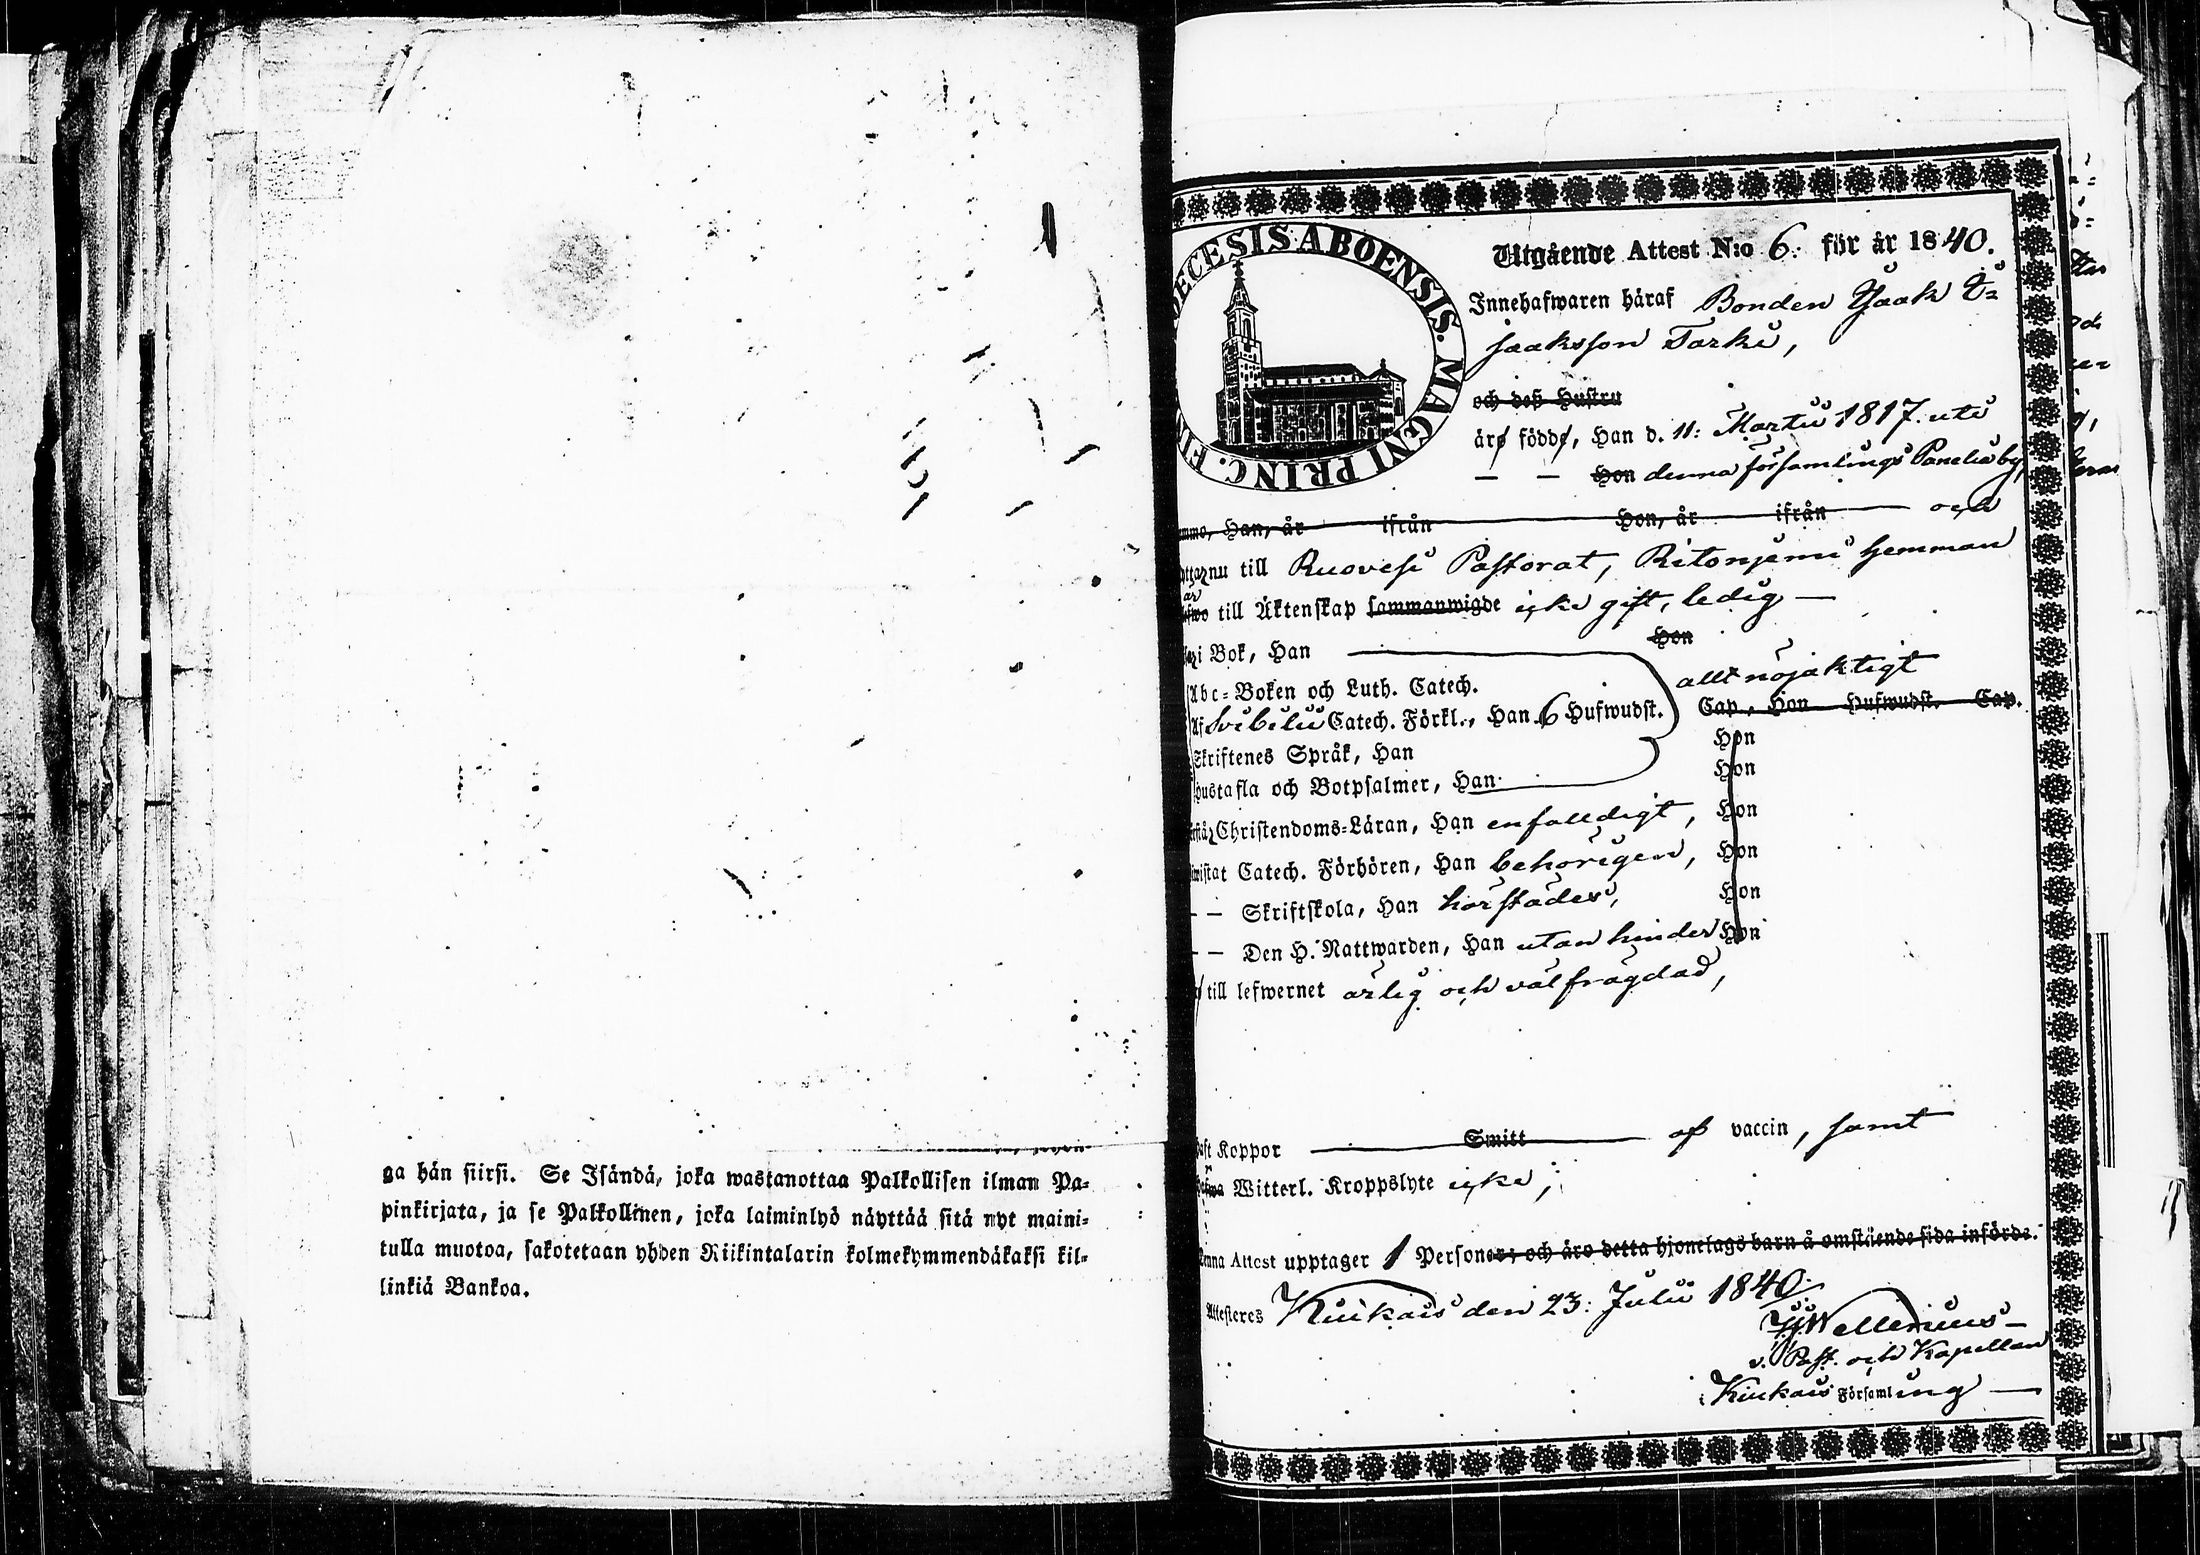 ga hän siirsi. Se Isändä, joka wastanottaa Palkollisen ilman Pa=
pinkirjata, ja se Palkollinen, joka laiminlyö näyttää sitä nyt maini=
tulla muotoa, sakotetaan yhden Riikintalarin kolmekymmendäkaksi kil=
linkiä Bankoa.
DECESIS ABOENSIS. MAGNI PRINC.
Utgående Attest N:o 6. för år 1840.
Innehafwaren häraf Bonden Isaak I=
saaksson Torki,
och deß Hustru
äro födde, Han d. 11: Martii 1817. uti
— — Hon denna församlings Panelia by,
Han, år ifrån Hon, år ifrån och
nu till Ruovesi Pastorat, Ritoniemi hemman
är
till Äktenskap sammanwigde icke gift, ledig —
i Bok, Han Hon
Abc=Boken och Luth. Catech. allt nöjaktigt
Af Svibelii Catech. Förkl., Han 6 Hufwudst. Cap., Hon Hufwudst. Cap.
Skriftenes Språk, Han Hon
Hustafla och Botpsalmer, Han Hon
Christendoms=Läran, Han enfalldigt, Hon
Catech. Förhören, Han behörigen, Hon
— — Skriftskola, Han härstädes, Hon
— — Den H. Nattwarden, Han utan hinder Hon
till lefwernet ärlig och välfrägdad,
Koppor Smitt af vaccin, samt
Witterl. Kroppslyte icke,
Attest upptager 1 Personer; och äro detta hjonelags barn å omstående sida införde.
Attesteres Kiukais den 23: Julii 1840.
Wellenius
v. Past. och Kapellan
i Kiukais Församling —